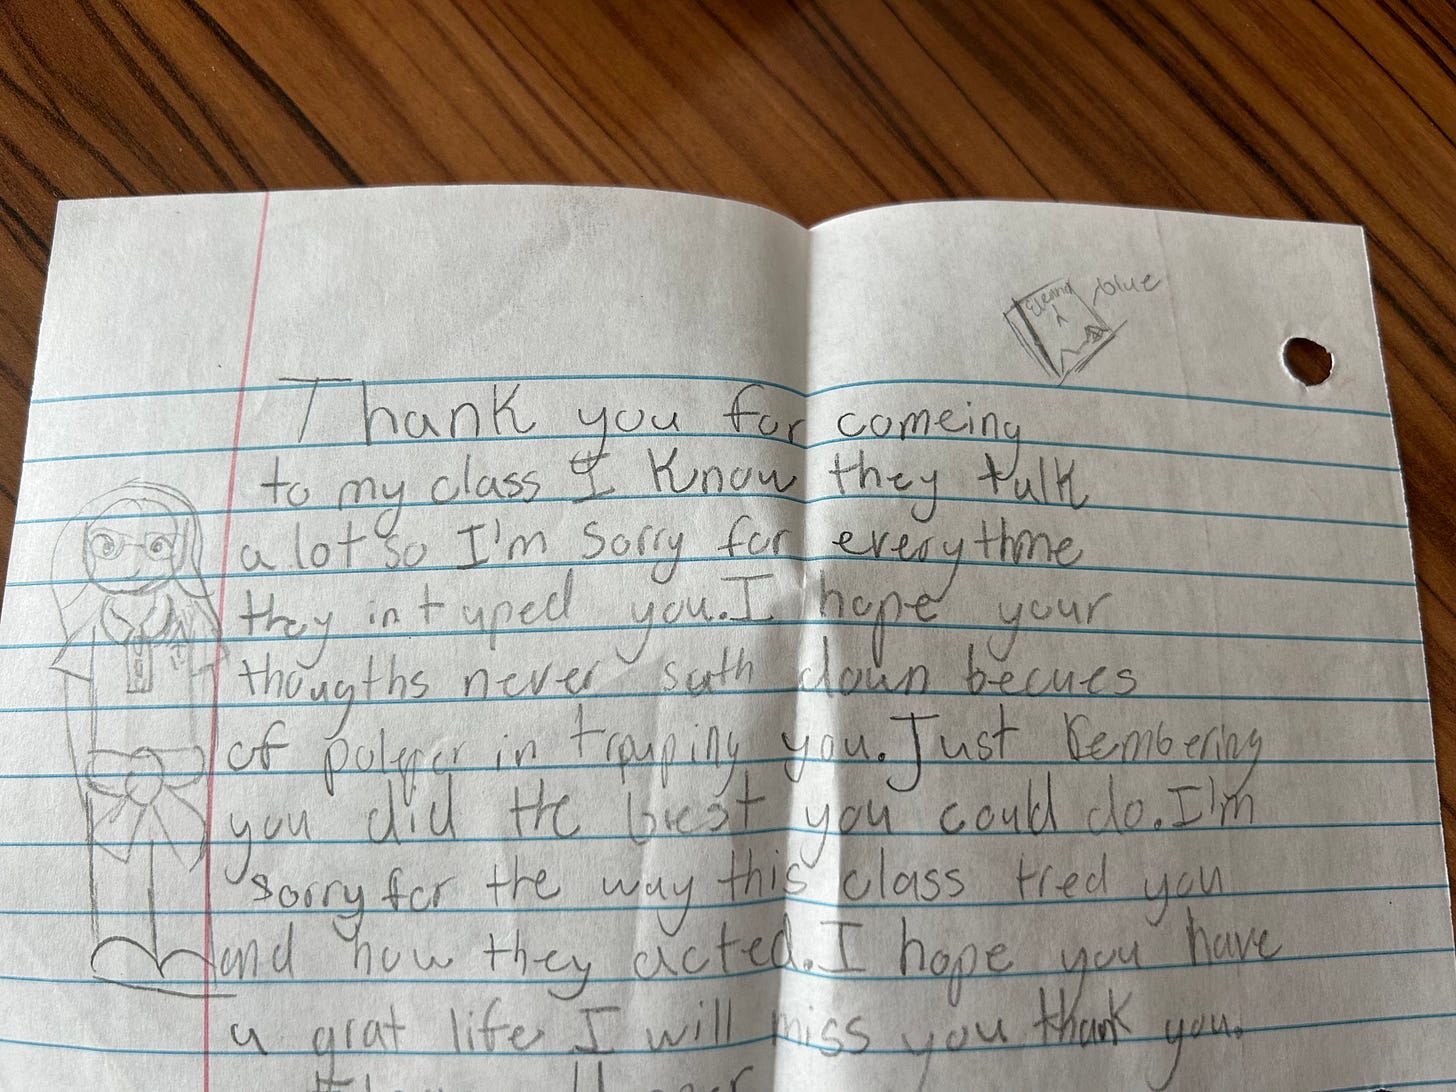 blue
Thank you for comeing
to my class I know they talk
a lot so I'm sorry for everythme
they intuped you. I hope your
thougths never suth down becues
of in you. Just Rembering
you did the best you could do. I'm
sorry for the way this class tred you
and how they acted. I hope you have
a grat life I will miss you thank you.